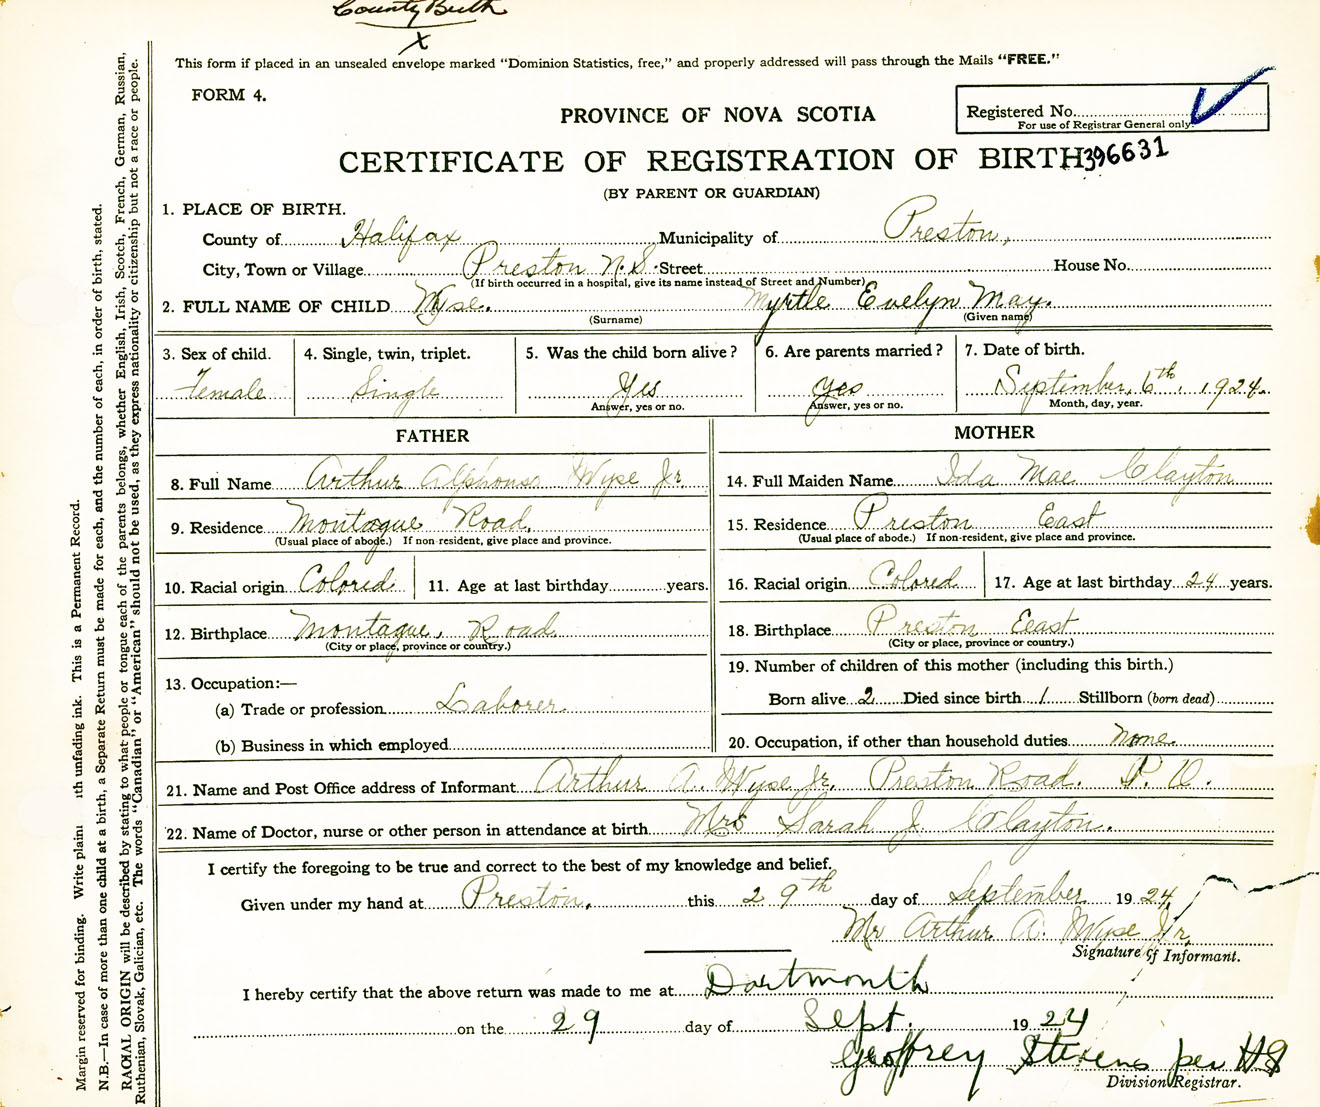 County Birth
x
This form if placed in an unsealed envelope marked "Dominion Statistics, free," and properly addressed will pass through the Mails "FREE."
FORM 4.
PROVINCE OF NOVA SCOTIA
Registered No.
For use of Registrar General only.
CERTIFICATE OF REGISTRATION OF BIRTH 396631
(BY PARENT OR GUARDIAN)
1. PLACE OF BIRTH.
County of Halifax Municipality of Preston,
City, Town or Village Preston N.S. Street House No.
(If birth occurred in a hospital, give its name instead of Street and Number)
2. FULL NAME OF CHILD Wyse. Myrtle Evelyn May.
(Surname) (Given name)
3. Sex of child. 4. Single, twin, triplet. 5. Was the child born alive? 6. Are parents married? 7. Date of birth.
Female Single Yes Yes September, 6th. 1924.
Answer, yes or no. Answer, yes or no. Month, day, year.
FATHER MOTHER
8. Full Name Arthur Alphonso Wyse Jr 14. Full Maiden Name Ida Mae Clayton
9. Residence Montague Road. 15. Residence Preston East
(Usual place of abode.) If non-resident, give place and province. (Usual place of abode.) If non-resident, give place and province.
10. Racial origin Colored 11. Age at last birthday years. 16. Racial origin Colored 17. Age at last birthday 24 years.
12. Birthplace Montague, Road 18. Birthplace Preston Eeast
(City or place, province or country.) (City or place, province or country.)
13. Occupation:— 19. Number of children of this mother (including this birth.)
(a) Trade or profession Laborer. Born alive 2 Died since birth 1 Stillborn (born dead)
(b) Business in which employed 20. Occupation, if other than household duties none.
21. Name and Post Office address of Informant Arthur A. Wyse Jr. Preston Road. P. O.
22. Name of Doctor, nurse or other person in attendance at birth Mrs Sarah J Clayton.
I certify the foregoing to be true and correct to the best of my knowledge and belief.
Given under my hand at Preston. this 29th day of September 1924
Mr Arthur A. Wyse Jr,
Signature of Informant.
I hereby certify that the above return was made to me at Dartmouth
on the 29 day of Sept. 1924
Geoffrey Stevens per HS
Division Registrar.
Margin reserved for binding. Write plain ith unfading ink. This is a Permanent Record.
N.B.—In case of more than one child at a birth, a Separate Return must be made for each, and the number of each, in order of birth, stated.
RACIAL ORIGIN will be described by stating to what people or tongue each of the parents belongs, whether English, Irish, Scotch, French, German, Russian,
Ruthenian, Slovak, Galician, etc. The words "Canadian" or "American" should not be used, as they express nationality or citizenship but not a race or people.